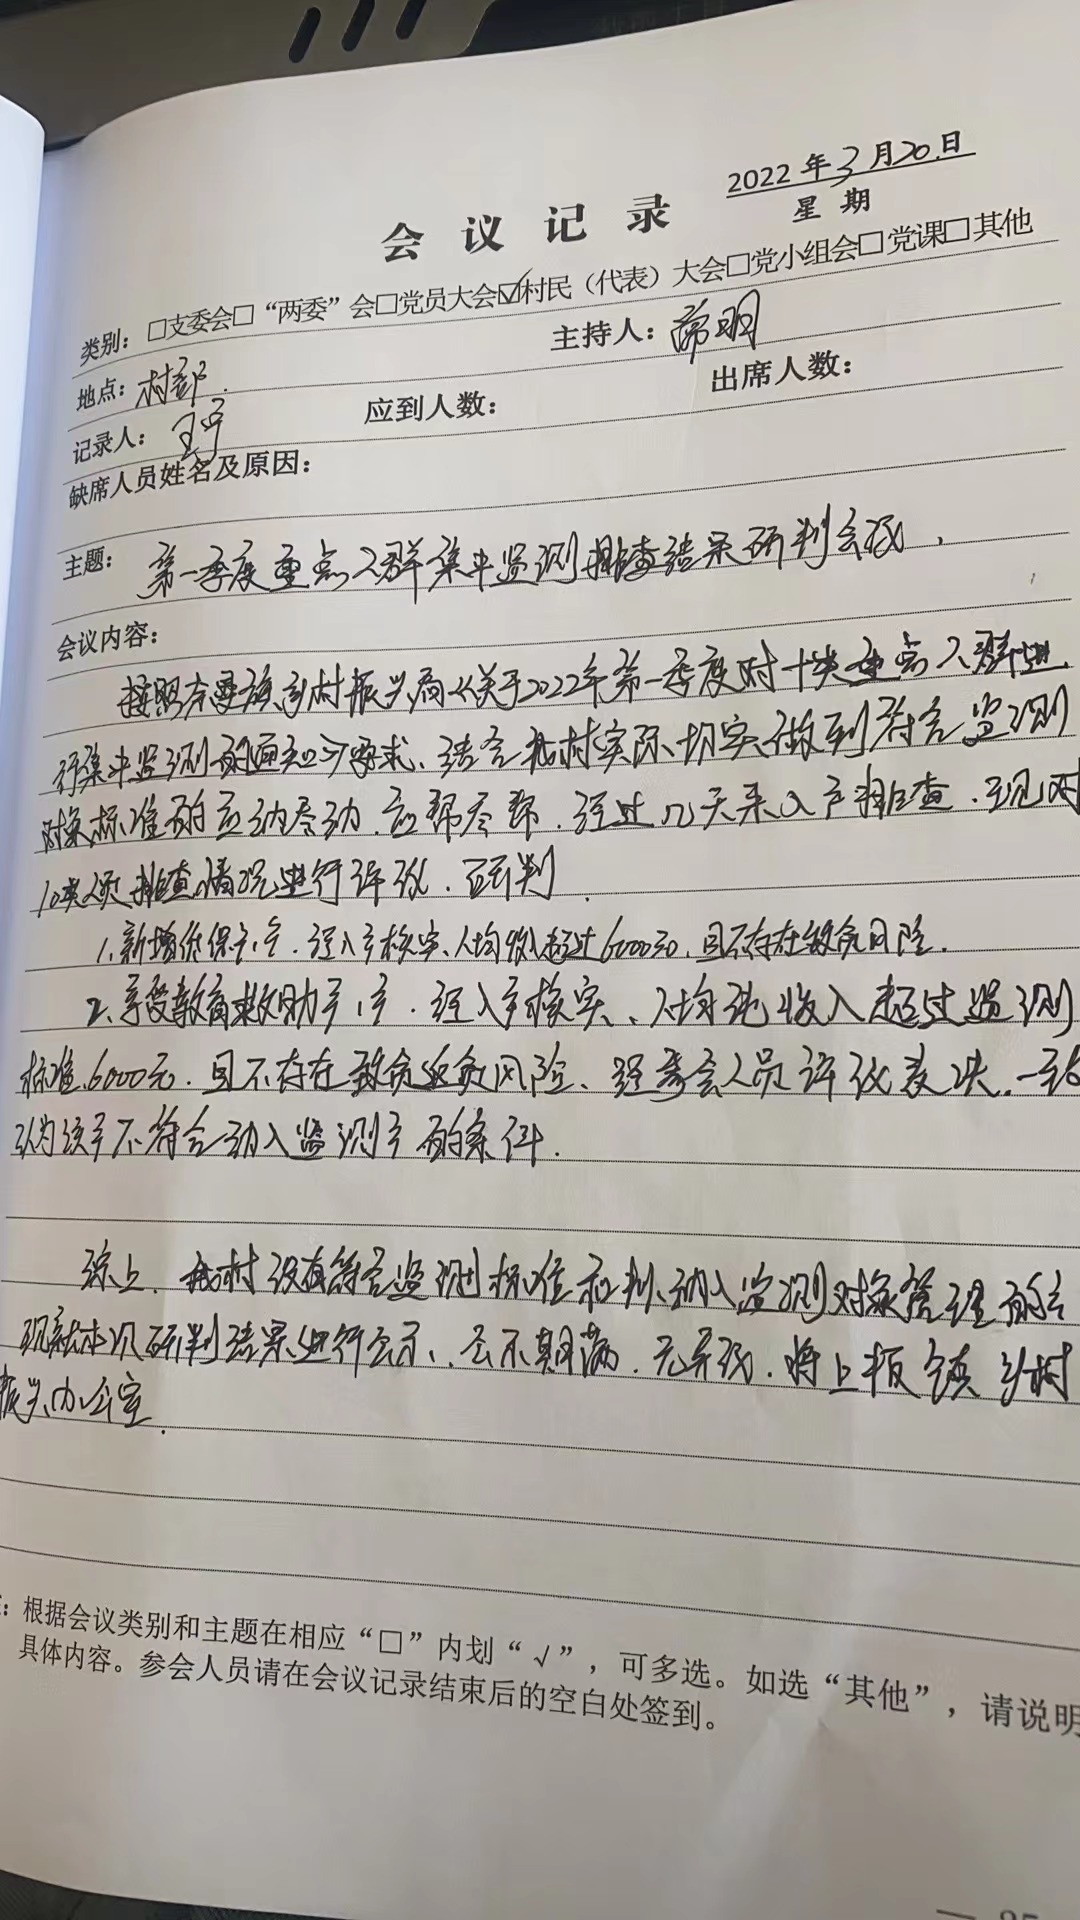 2022年3月20日
星期
会议记录
类别：□支委会□“两委”会□党员大会☑村民（代表）大会□党小组会□党课□其他
地点：村部. 主持人：
记录人：王宁 应到人数： 出席人数：
缺席人员姓名及原因：
主题：第一季度重点人群集中监测排查结果研判会议.
会议内容：
按照奈曼旗乡村振兴局《关于2022年第一季度对十类重点人群进
行集中监测的通知》要求、结合我村实际、切实做到符合监测
对象标准的应纳尽纳.应帮尽帮.经过几天来入户排查.现对
10类人员排查情况进行评议.研判
1.新增低保户1户.经入户核实、人均收入超过6000元,且不存在致贫风险.
2.享受教育救助户1户.经入户核实、人均纯收入超过监测
标准6000元.且不存在致贫返贫风险、经参会人员评议表决.一致
认为该户不符合纳入监测户的条件.
综上.我村没有符合监测标准和 纳入监测对象管理的
现就本次研判结果进行公示、公示期满.无异议.将上报镇乡村
振兴办公室.
：根据会议类别和主题在相应“□”内划“√”，可多选。如选“其他”，请说明
具体内容。参会人员请在会议记录结束后的空白处签到。